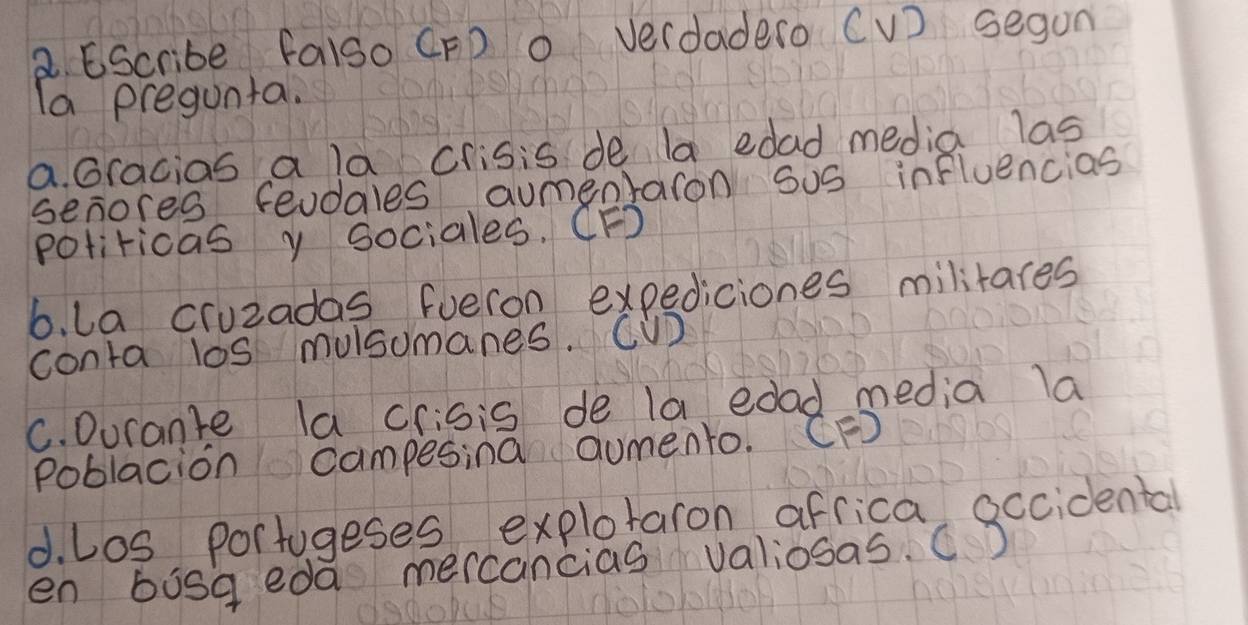 2. Escribe falso (F) o verdadero (V) segun
la pregunta.
a. Gracias a la crisis de la edad media las
señores feudales aumentaron sus influencias
politicas y sociales. (F)
b. La cruzadas fueron expediciones militares
conta los mulsumanes. (V)
c. Durante la crisis de la edad media la
Poblacion campesina aumento. (F)
d. Los portugeses explotaron africa occidental
en búsqeda mercancias valiosas. ( )